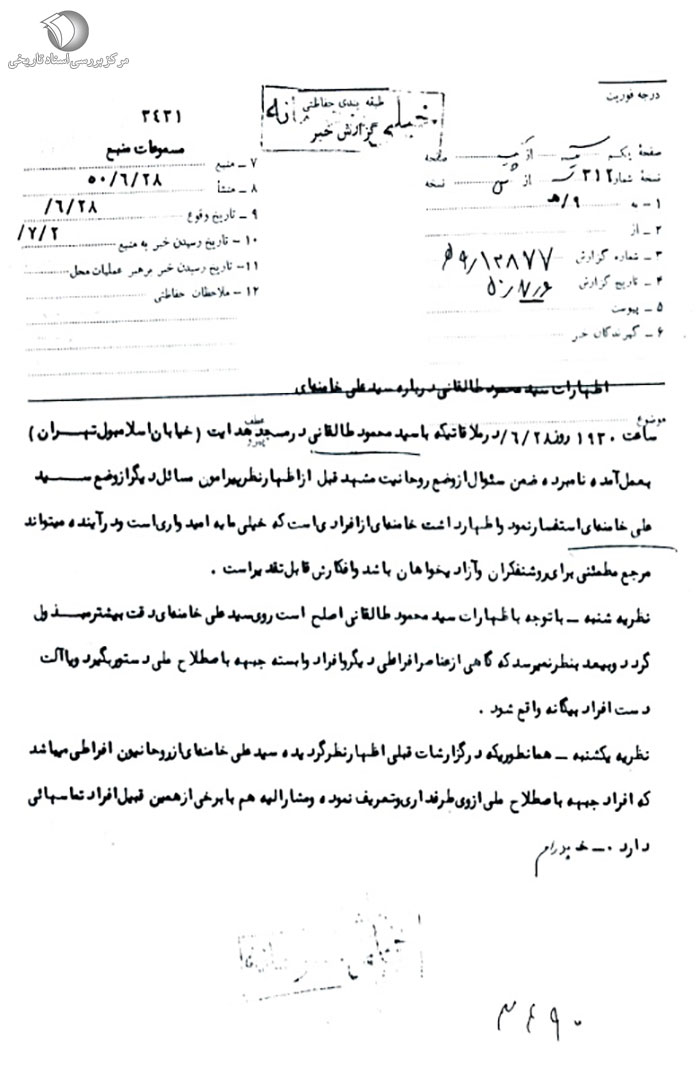 مرکز بررسی اسناد تاریخی
درجه فوریت
طبقه بندی حفاظتی
خیلی محرمانه
گزارش خبر
صفحهٔ یکم از صفحه
نسخهٔ شماره ۳۱۲ از نسخه
۱ – به ۹/هـ
۲ – از
۳ – شماره گزارش ۹/۱۲۸۷۷هـ
۴ – تاریخ گزارش ۵۰/۷/۶
۵ – پیوست
۶ – گیرندگان خبر
۷ – منبع ۳۴۳۱
۸ – منشأ مسموعات منبع
۹ – تاریخ وقوع ۵۰/۶/۲۸
۱۰ – تاریخ رسیدن خبر به منبع ۶/۲۸/
۱۱ – تاریخ رسیدن خبر برهبر عملیات محل ۷/۲/
۱۲ – ملاحظات حفاظتی
موضوع اظهارات سید محمود طالقانی درباره سید علی خامنه‌ای
عطف
پیرو
ساعت ۱۹۳۰ روز ۶/۲۸/ در ملاقاتیکه با سید محمود طالقانی در مسجد هدایت (خیابان اسلامبول تهران)
بعمل آمده نامبرده ضمن سئوال از وضع روحانیت مشهد قبل از اظهار نظر پیرامون مسائل دیگر از وضع سید
علی خامنه‌ای استفسار نمود و اظهار داشت خامنه‌ای از افرادی است که خیلی مایه امیدواری است و در آینده میتواند
مرجع مطمئنی برای روشنفکران و آزادیخواهان باشد و افکارش قابل تقدیر است .
نظریه شنبه – با توجه باظهارات سید محمود طالقانی اصلح است روی سید علی خامنه‌ای دقت بیشتر مبذول
گردد و بعید بنظر نمیرسد که گاهی از عناصر افراطی دیگر و افراد وابسته جبهه باصطلاح ملی دستور بگیرد و یا آلت
دست افراد بیگانه واقع شود .
نظریه یکشنبه – همانطوریکه در گزارشات قبلی اظهار نظر گردیده سید علی خامنه‌ای از روحانیون افراطی میباشد
که افراد جبهه باصطلاح ملی از وی طرفداری و تعریف نموده و مشارالیه هم با برخی از همین قبیل افراد تماسهائی
دارد . – خ پدرام
۳۶۹۰